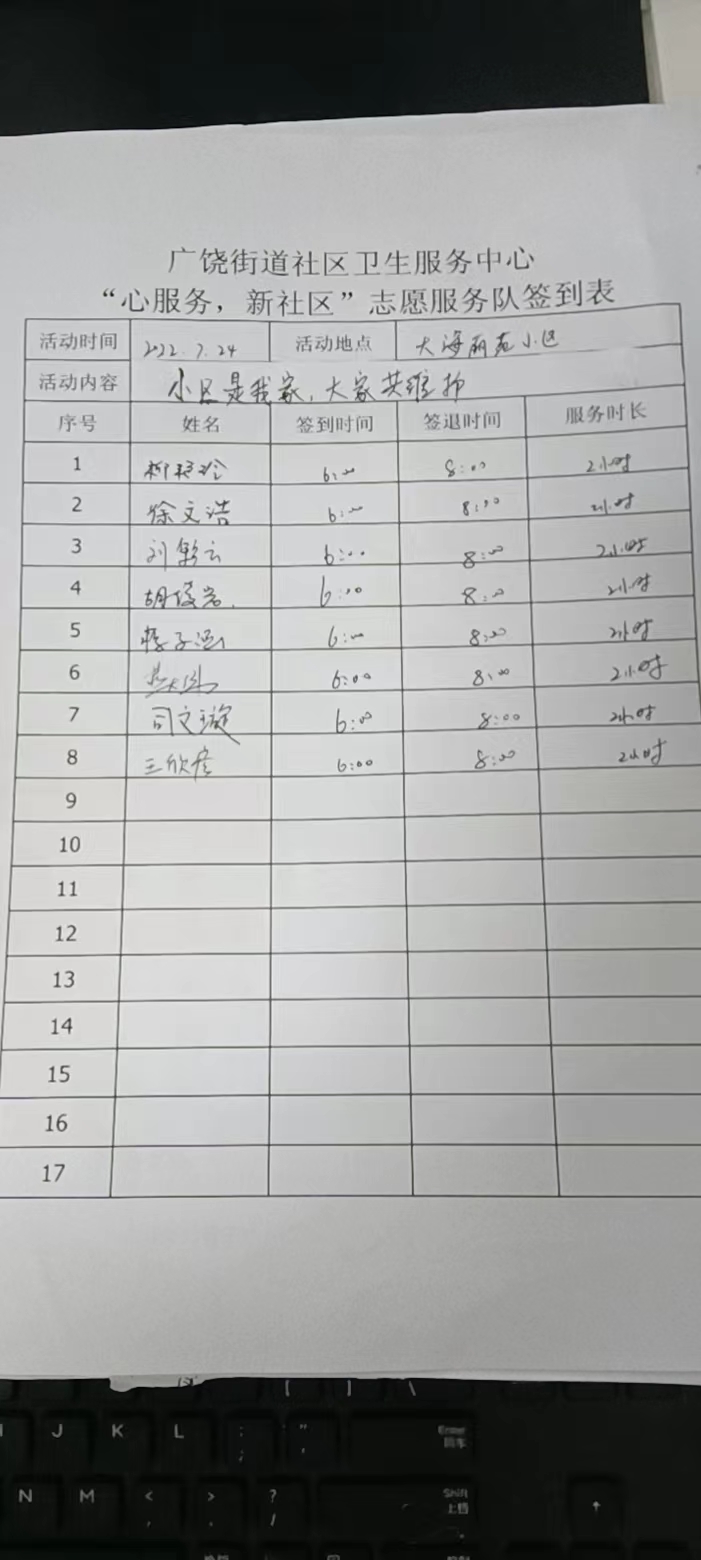 广饶街道社区卫生服务中心
“心服务，新社区”志愿服务队签到表
活动时间 2022.7.24 活动地点 大海丽苑小区
活动内容 小区是我家，大家共维护
序号 姓名 签到时间 签退时间 服务时长
1 6:00 8:00 2小时
2 徐文浩 6:00 8:00 2小时
3 刘彩云 6:00 8:00 2小时
4 胡俊岩 6:00 8:00 2小时
5 6:00 8:00 2小时
6 6:00 8:00 2小时
7 司文璇 6:00 8:00 2小时
8 王欣彦 6:00 8:00 2小时
9
10
11
12
13
14
15
16
17
[ ] \
J K L : ; " ' Enter 回车
N M < , > . ? / Shift 上档 ↑